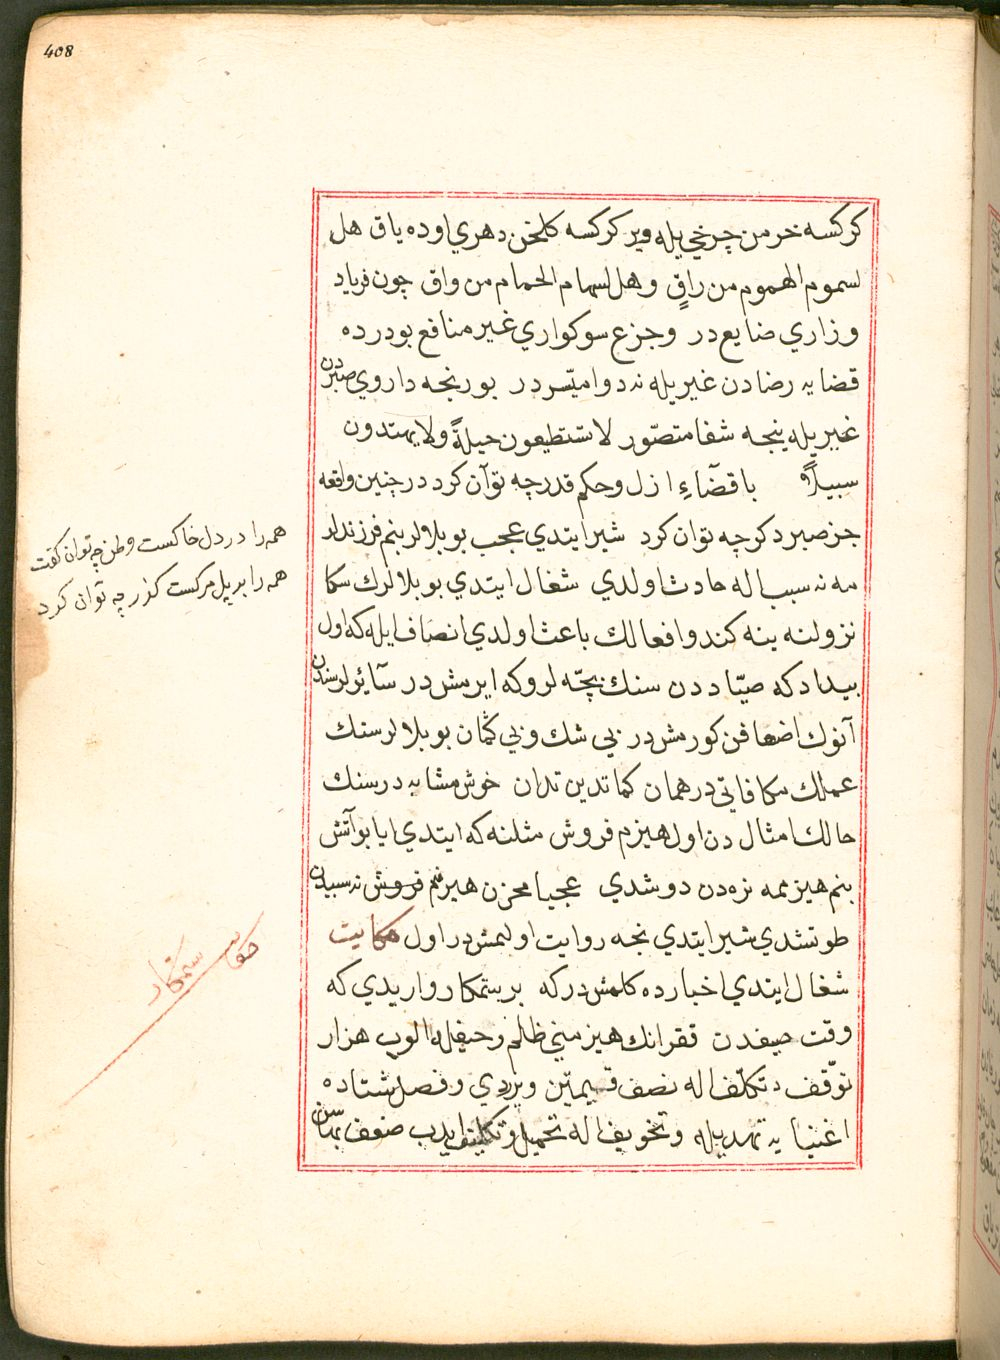 408
كركسه خرمن چرخي يله وير كركسه كلخن دهري اوده ياق هل
لسموم الهموم من راقٍ وهل لسهام الحمام من واق چون فرياد
وزاري ضايع در وجزع سوكواري غير منافع بو درده
قضايه رضادن غيريله نه دوا ميّسر در بو رنجه داروي صبردن
غيريله ينجه شفا متصّور لا تستطيعون حيلةً ولا يهتدون
سبيلاً با قضآءِ ازل وحكم قدر چه توآن كرد در چنين واقعه
جز صبر دكر چه توان كرد شير ايتدي عجب بو بلالر بنم فرزندلر
مه نه سبب اله حادث اولدي شغال ايتدي بو بلالرك سكا
نزولنه ينه كندو افعالك باعث اولدي انصاف ايله كه اول
بيداد كه صيّاددن سنك بچّه لروكه ايرمشدر سآئرلر سندن
آنوك اضعافن كورمشدر بي شك وبي كمان بو بلالر سنك
عملك مكافاتي در همان كما تدين تدان خوش مشابه در سنك
حالك امثالدن اول هيزم فروش مثلنه كه ايتدي ايا بو آتش
بنم هيزممه نره دن دوشدي عجبا مخزن هيزمم فروش نه سبيدن
طوتشدي شير ايتدي نجه روايت اولنمشدر اول حكايت
شغال ايتدي اخبارده كلمش در كه بر ستمكار واريدي كه
وقت صيفدن فقرانك هيزمني ظلم وحيفله الوب هزار
توّقف وتكلّف اله نصف قيمتين ويردي وفصل شتاده
اغنيا يه تهديدله وتخويف اله تحميل وتكليف ايدب ضعف بهاسن
همه را در دل خاكست وطن چه توان كفت
همه را بر پل مركست كذر چه توان كرد
حكايت ستمكار